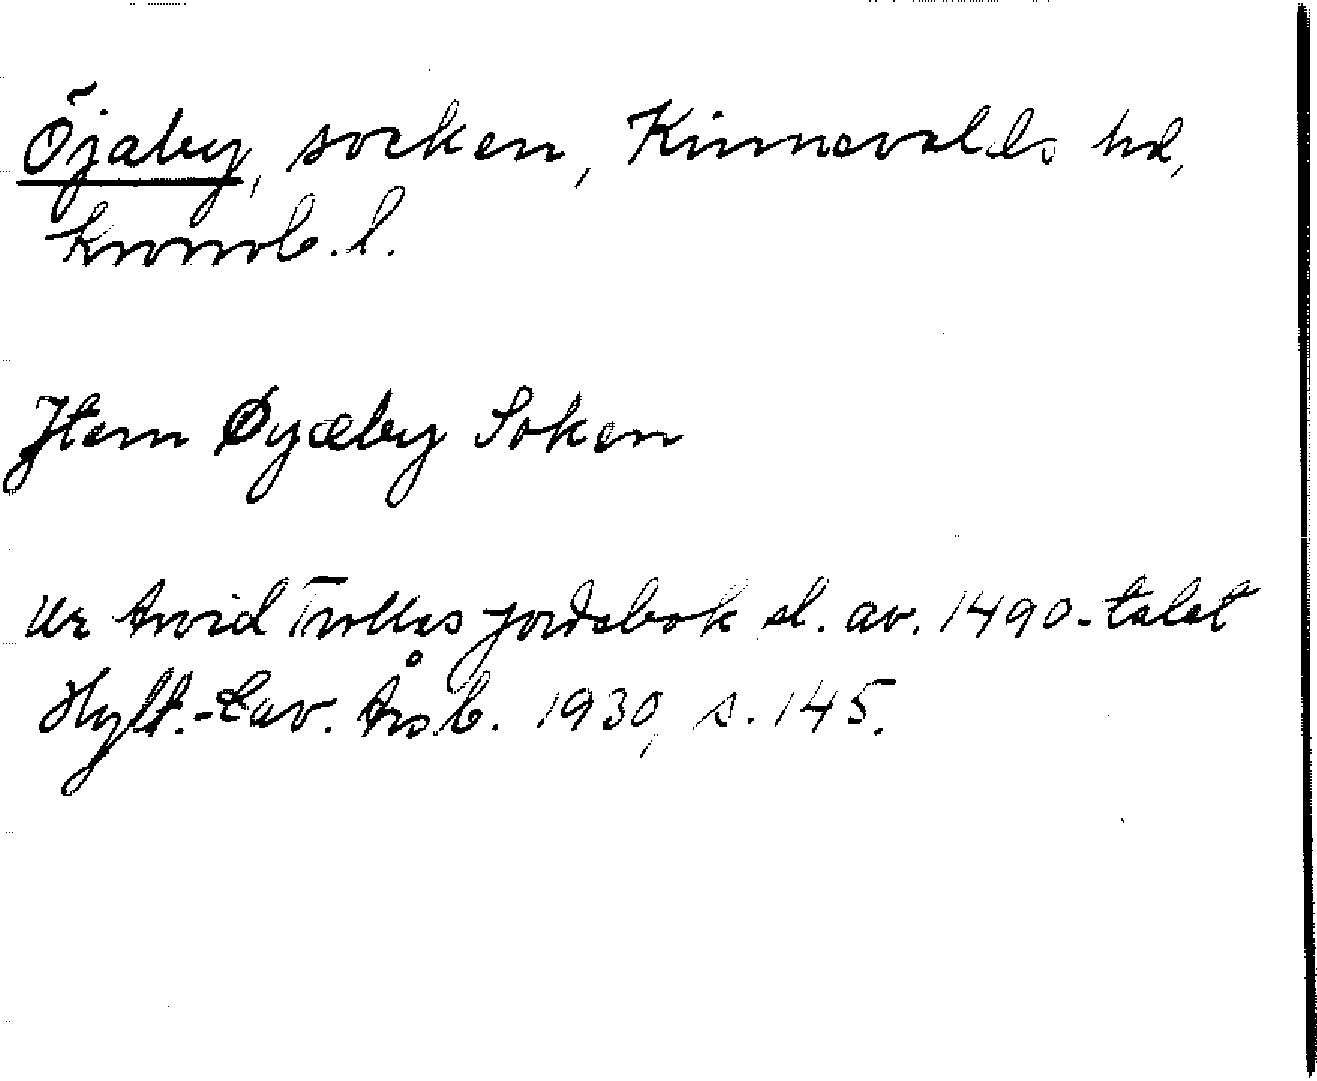 Öjaby, socken, Kinnevalds hd,
Kronob. l.
Jtem Øyæby Soken
Ur Arvid Trolles jordebok sl. av. 1490-talet
Hylt.-Cav. Årsb. 1930, s. 145.